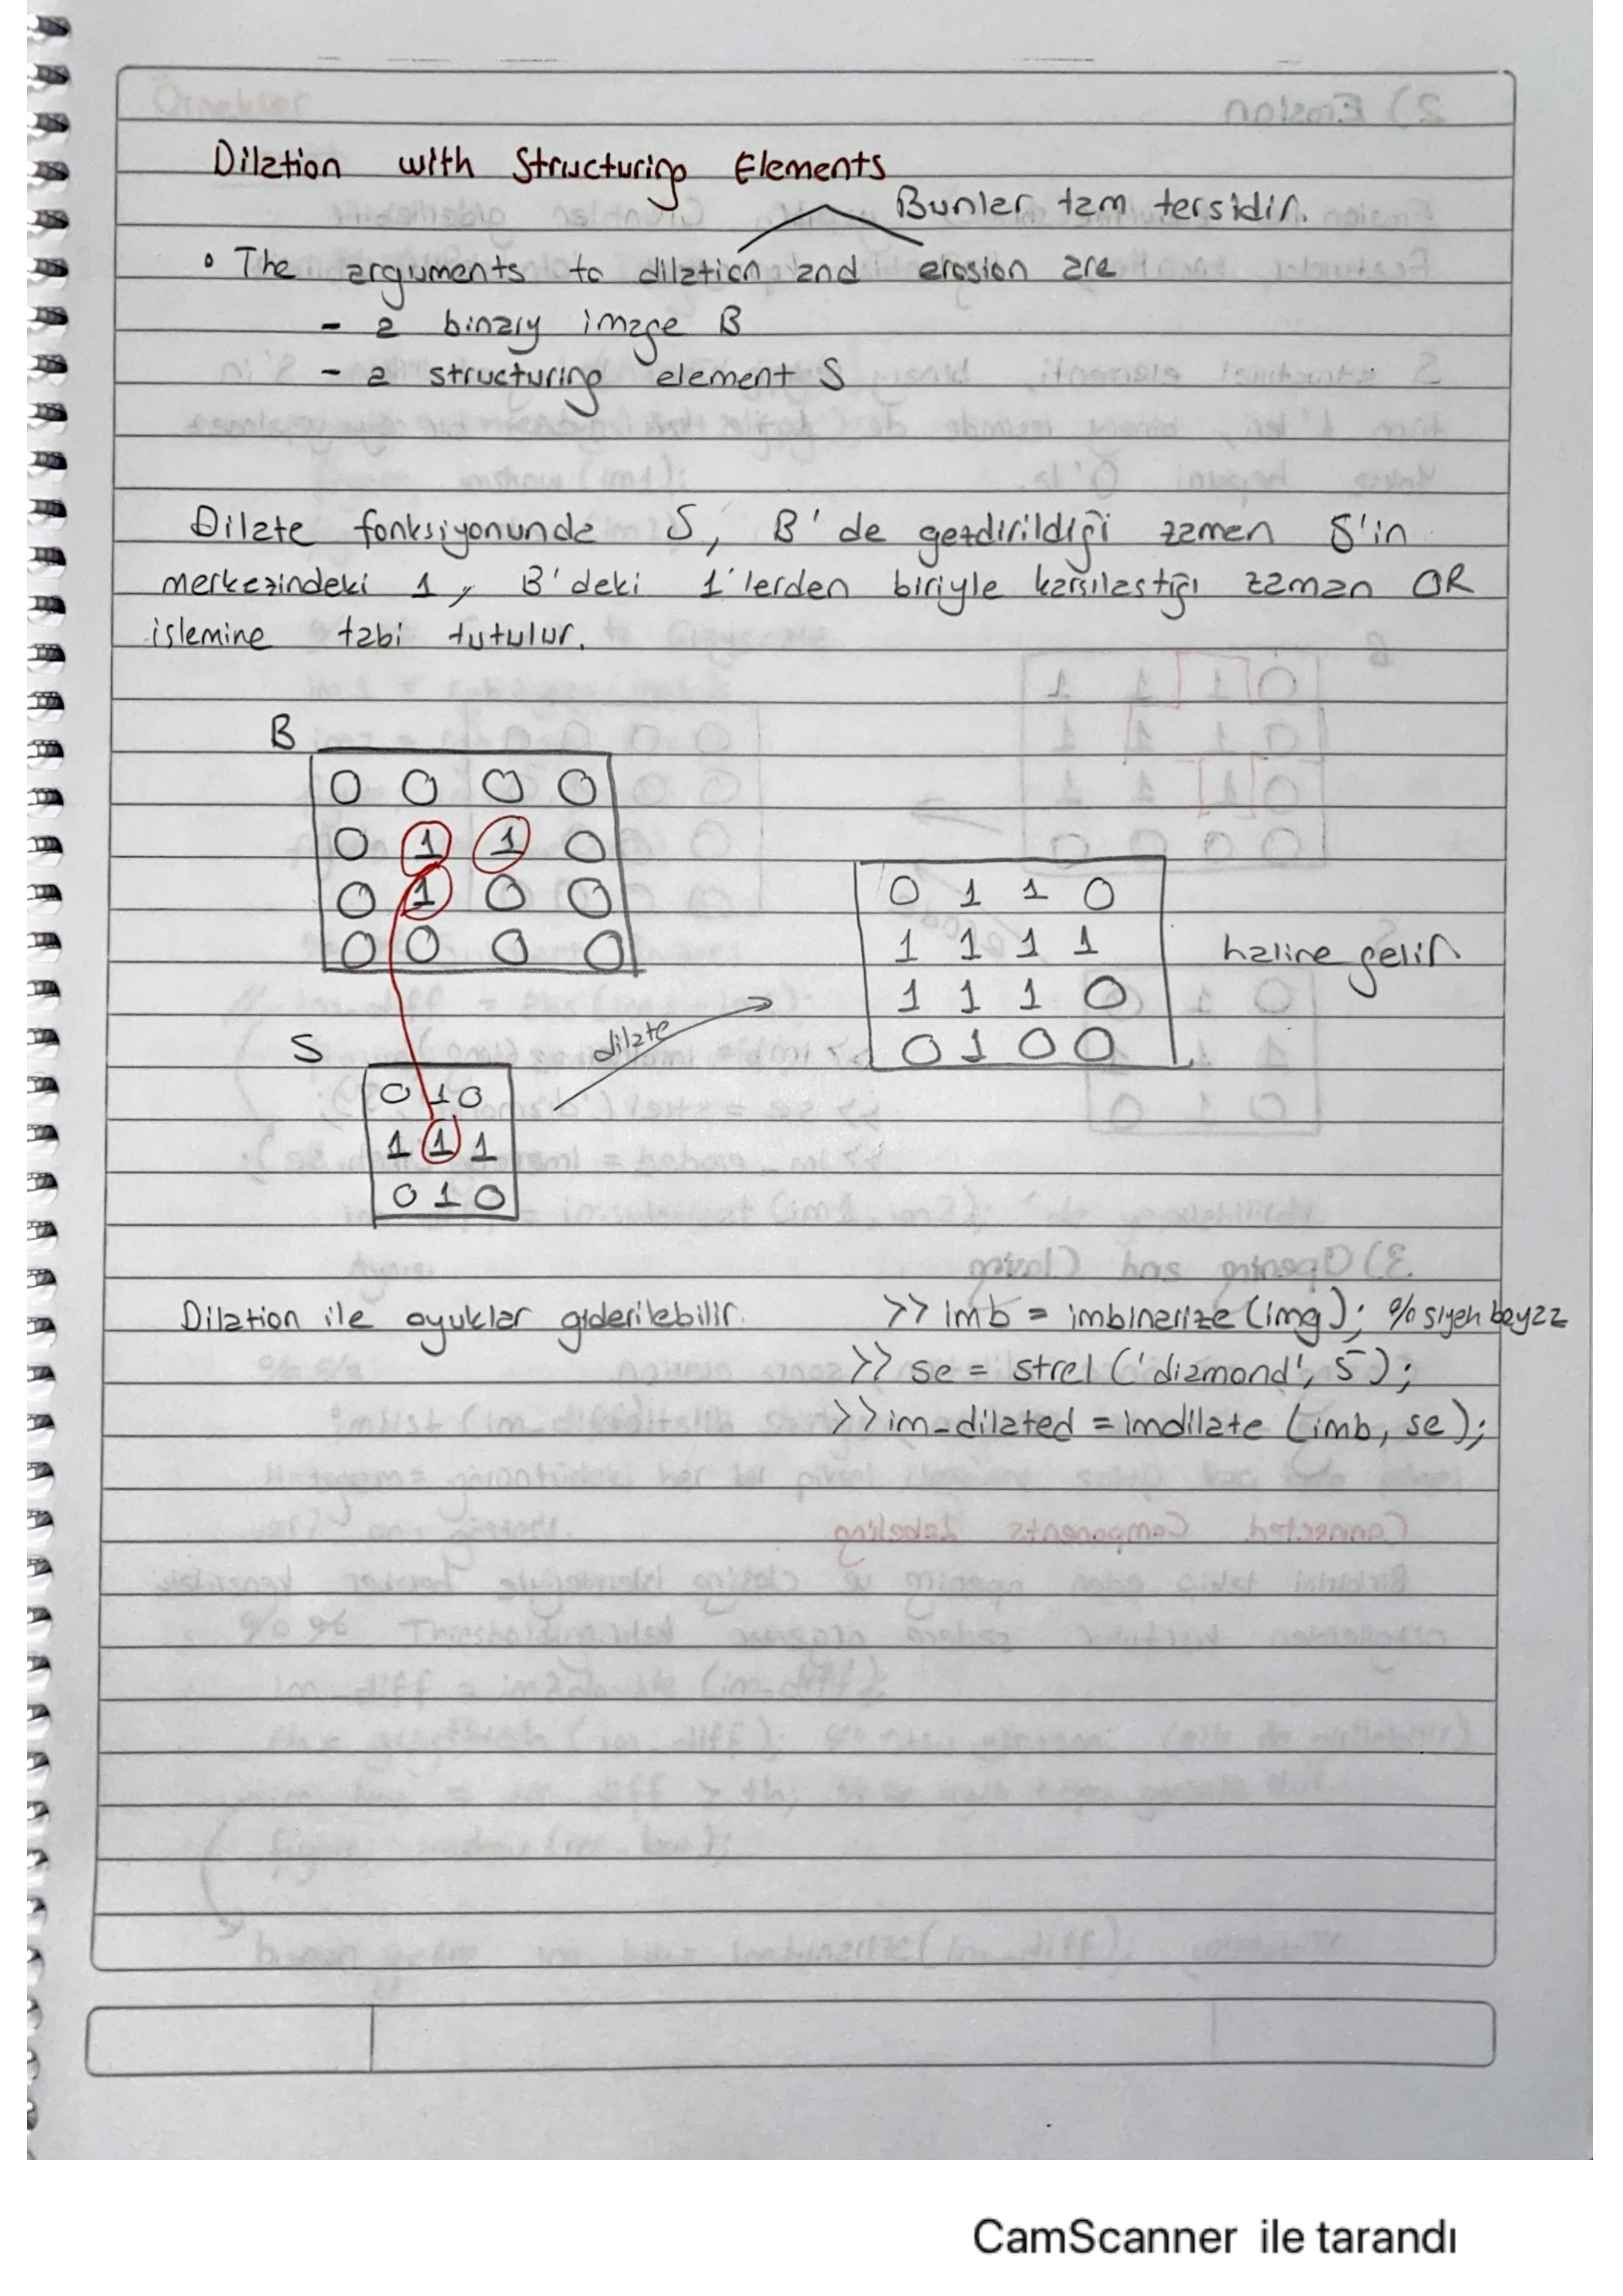 Dilation with Structuring Elements
Bunlar tam tersidir.
• The arguments to dilation and erosion are
- a binary image B
- a structuring element S
Dilate fonksiyonunda S, B'de gezdirildiği zaman S'in
merkezindeki 1, B'deki 1'lerden biriyle karşılaştığı zaman OR
işlemine tabi tutulur.
B
0 0 0 0
0 1 1 0
0 1 0 0
0 0 0 0
0 1 1 0
1 1 1 1
1 1 1 0
0 1 0 0
haline gelir
S
dilate
0 1 0
1 1 1
0 1 0
Dilation ile oyuklar giderilebilir.
>> imb = imbinarize(img); % siyah beyaz
>> se = strel('diamond', 5);
>> im_dilated = imdilate (imb, se);
CamScanner ile tarandı